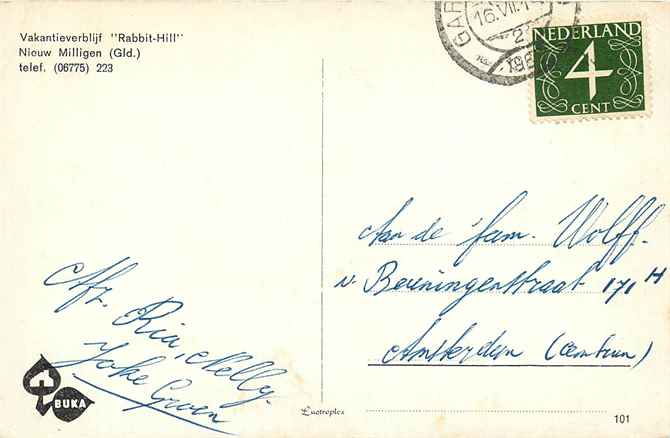 Vakantieverblijf "Rabbit-Hill"
Nieuw Milligen (Gld.)
telef. (06775) 223
GAR
16.VII.1
2
196
NEDERLAND
4
CENT
Aan de fam. Wolff.
v. Beuningenstraat 171 H
Amsterdam (Centrum)
Afz. Ria, Nelly.
Joke Groen
BUKA
Luotroplex
101